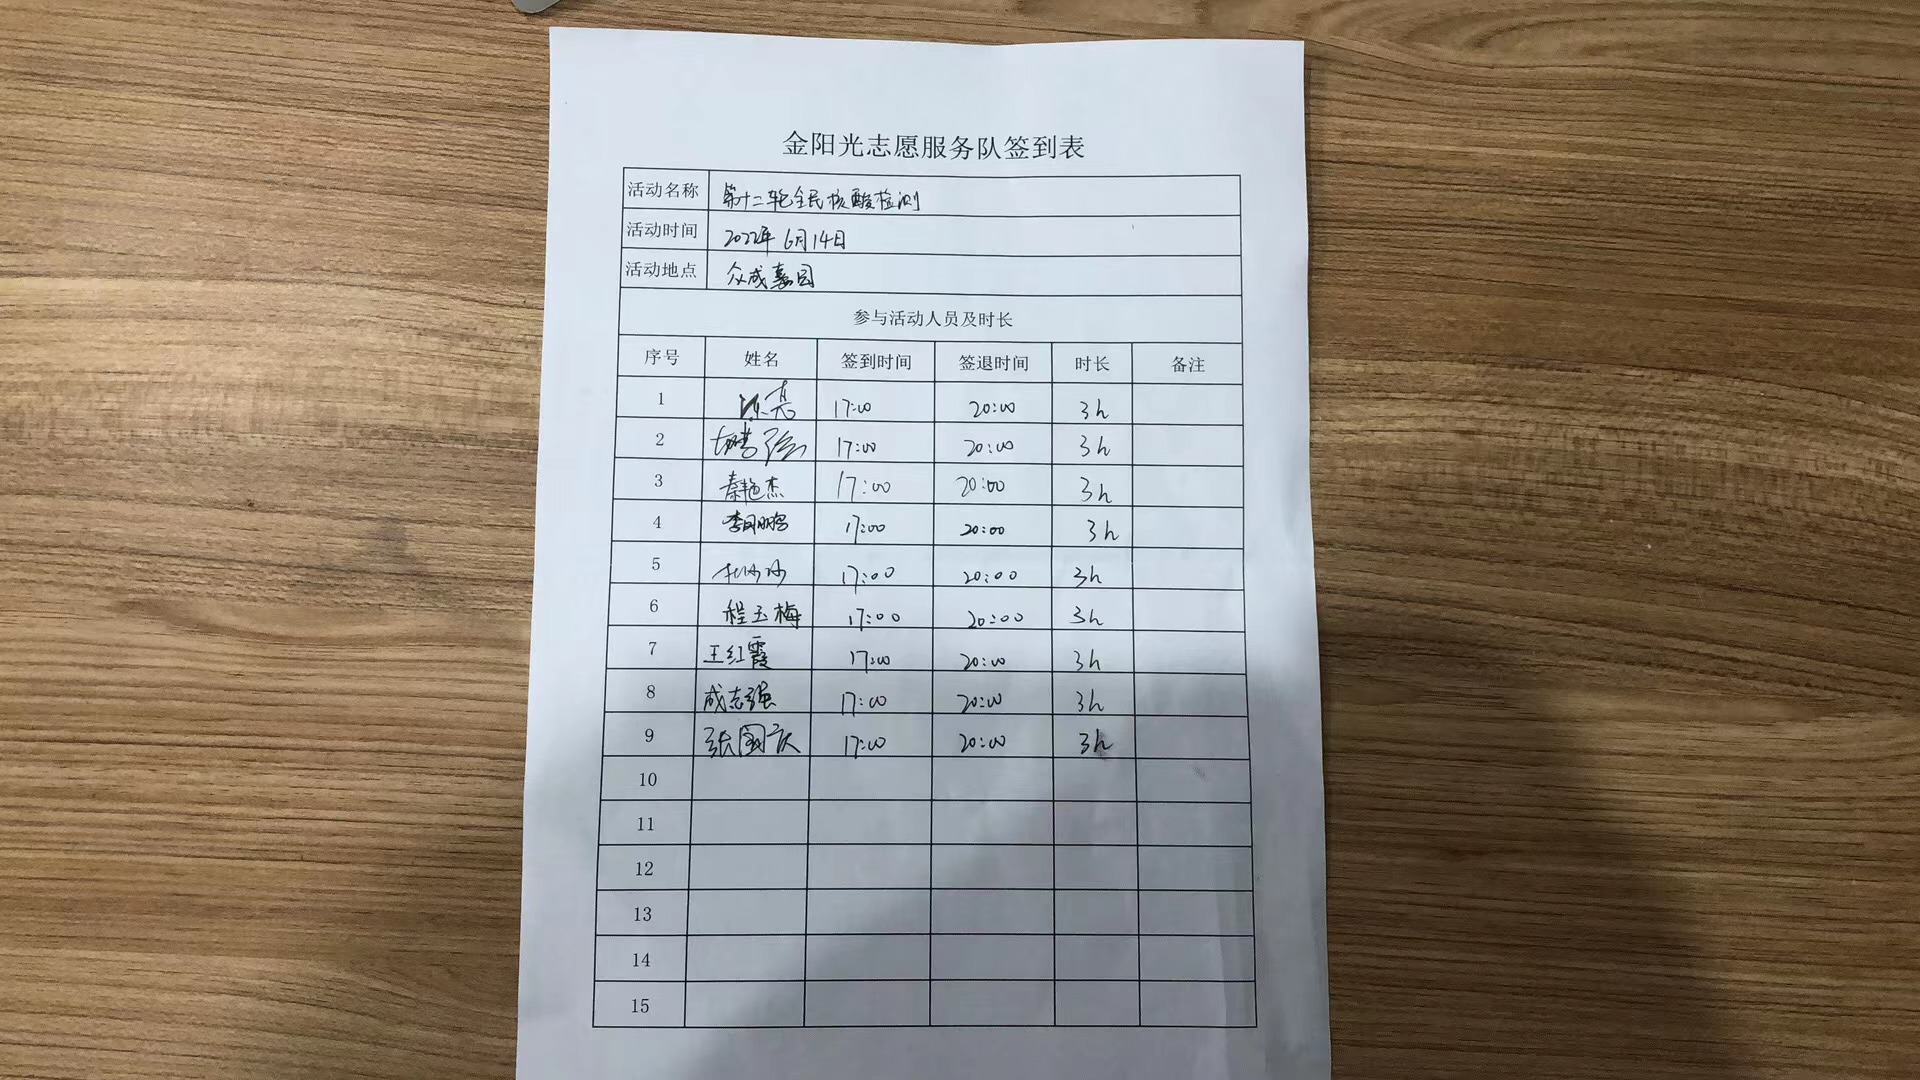 金阳光志愿服务队签到表
活动名称 第十二轮全民核酸检测
活动时间 2022年6月14日
活动地点 众成嘉园
参与活动人员及时长
序号 姓名 签到时间 签退时间 时长 备注
1 陈亮 17:00 20:00 3h
2 17:00 20:00 3h
3 秦艳杰 17:00 20:00 3h
4 李月鹏 17:00 20:00 3h
5 杜沙沙 17:00 20:00 3h
6 程玉梅 17:00 20:00 3h
7 王红霞 17:00 20:00 3h
8 成志强 17:00 20:00 3h
9 张国庆 17:00 20:00 3h
10
11
12
13
14
15